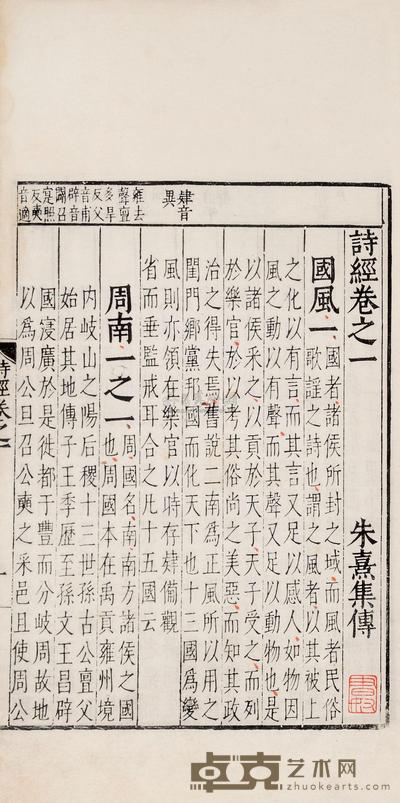 詩經卷之一
朱熹集傳
國風一
國者諸侯所封之域而風者民俗
歌謡之詩也謂之風者以其被上
之化以有言而其言又足以感人如物因
風之動以有聲而其聲又足以動物也是
以諸侯采之以貢於天子天子受之而列
於樂官於以考其俗尚之美惡而知其政
治之得失焉舊說二南為正風所以用之
閨門鄉黨邦國而化天下也十三國為變
風則亦領在樂官以時存肄備觀
省而垂監戒耳合之凡十五國云
肄音
異
周南一之一
周國名南南方諸侯之國
也周國本在禹貢雍州境
内岐山之陽后稷十三世孫古公亶父
始居其地傳子王季歷至孫文王昌辟
國寖廣於是徙都于豐而分岐周故地
以為周公旦召公奭之采邑且使周公
雍去
聲亶
多旱
反父
音甫
辟音
闢召
寔照
反奭
音適
詩經卷之一
一
卓克艺术网
zhuokearts.com